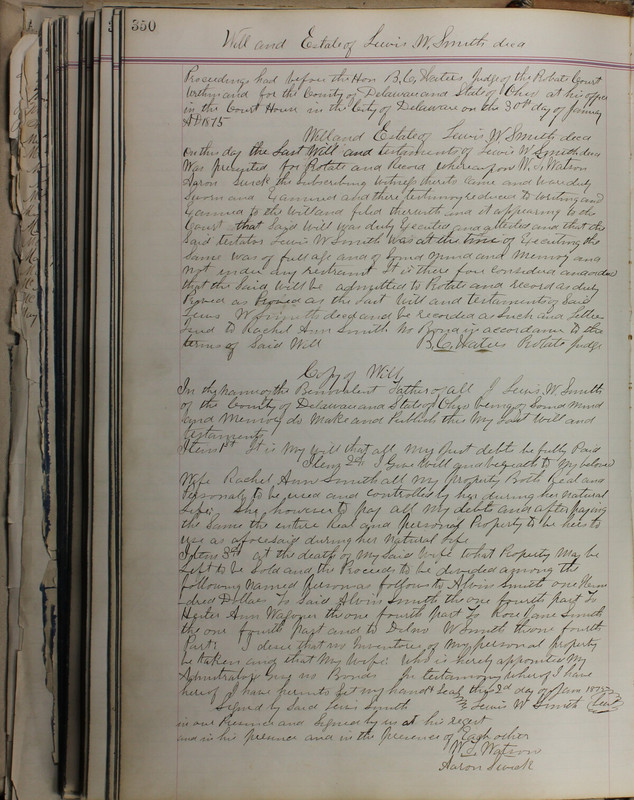 350
Will and Estate of Lewis W. Smith decd
Proceedings had before the Hon B. C. Waters Judge of the Probate Court
within and for the County of Delaware and State of Ohio at his office
in the Court House in the City of Delaware on the 30th day of January
AD 1875
Will and Estate of Lewis W Smith decd
on this day the Last Will and testaments of Lewis W Smith decd
Was presented for Probate and Record whereupon W. S. Watson
Aaron the subscribing witness thereto came and was duly
Sworn and Examined and there testimony reduced to writing and
to the Will and filed therewith and it appearing to the
Court that Said Will was duly Executed and attested and that the
Said testator Lewis W Smith was at the time of Executing the
Same was of full age and of Sound Mind and Memory and
not under any restraint It is there fore Considered and
that the Said Will be admitted to Probate and record as duly
Proved as Proved as the Last Will and testament of Said
Lewis W Smith decd and be recorded as Such and
to Rachel Ann Smith No Bond in accordance to the
terms of Said Will B. C. Waters Probate Judge
Copy of Will
In the Name of the Benevolent Father of all I Lewis W. Smith
of the County of Delaware and State of Ohio being of Sound Mind
and Memory do Make and Publish this My Last Will and
testament
Item 1st It is My Will that all My Just debts be fully Paid
Item 2d I Give Will and bequeath to My beloved
Wife Rachel Ann Smith all my Property Both Real and
Personal to be used and controlled by her during her Natural
Life She however to pay all My debts and after paying
the Same the entire Real and personal Property to be hers to
use as aforesaid during her Natural Life
Item 3d at the death of My Said Wife What Property May be
Left to be Sold and the Proceeds to be divided among the
following Named Persons as follows to Alvin Smith one Hun
dred Dollars To Said Alvin Smith the one fourth part To
Hester Ann Wagoner the one fourth part To Rose Jane Smith
the one fourth part and to W Smith the one fourth
Part I desire that no Inventory of My personal property
be taken and that My Wife who is hereby appointed My
Give no Bonds In testimony whereof I have
hereof I have Set my hand & Seal this 2d day of Jan 1875
Signed by Said Lewis Smith Lewis W Smith Seal
in our Presence and Signed by us at his
and in his presence and in the presence of Each other
W. S. Watson
Aaron